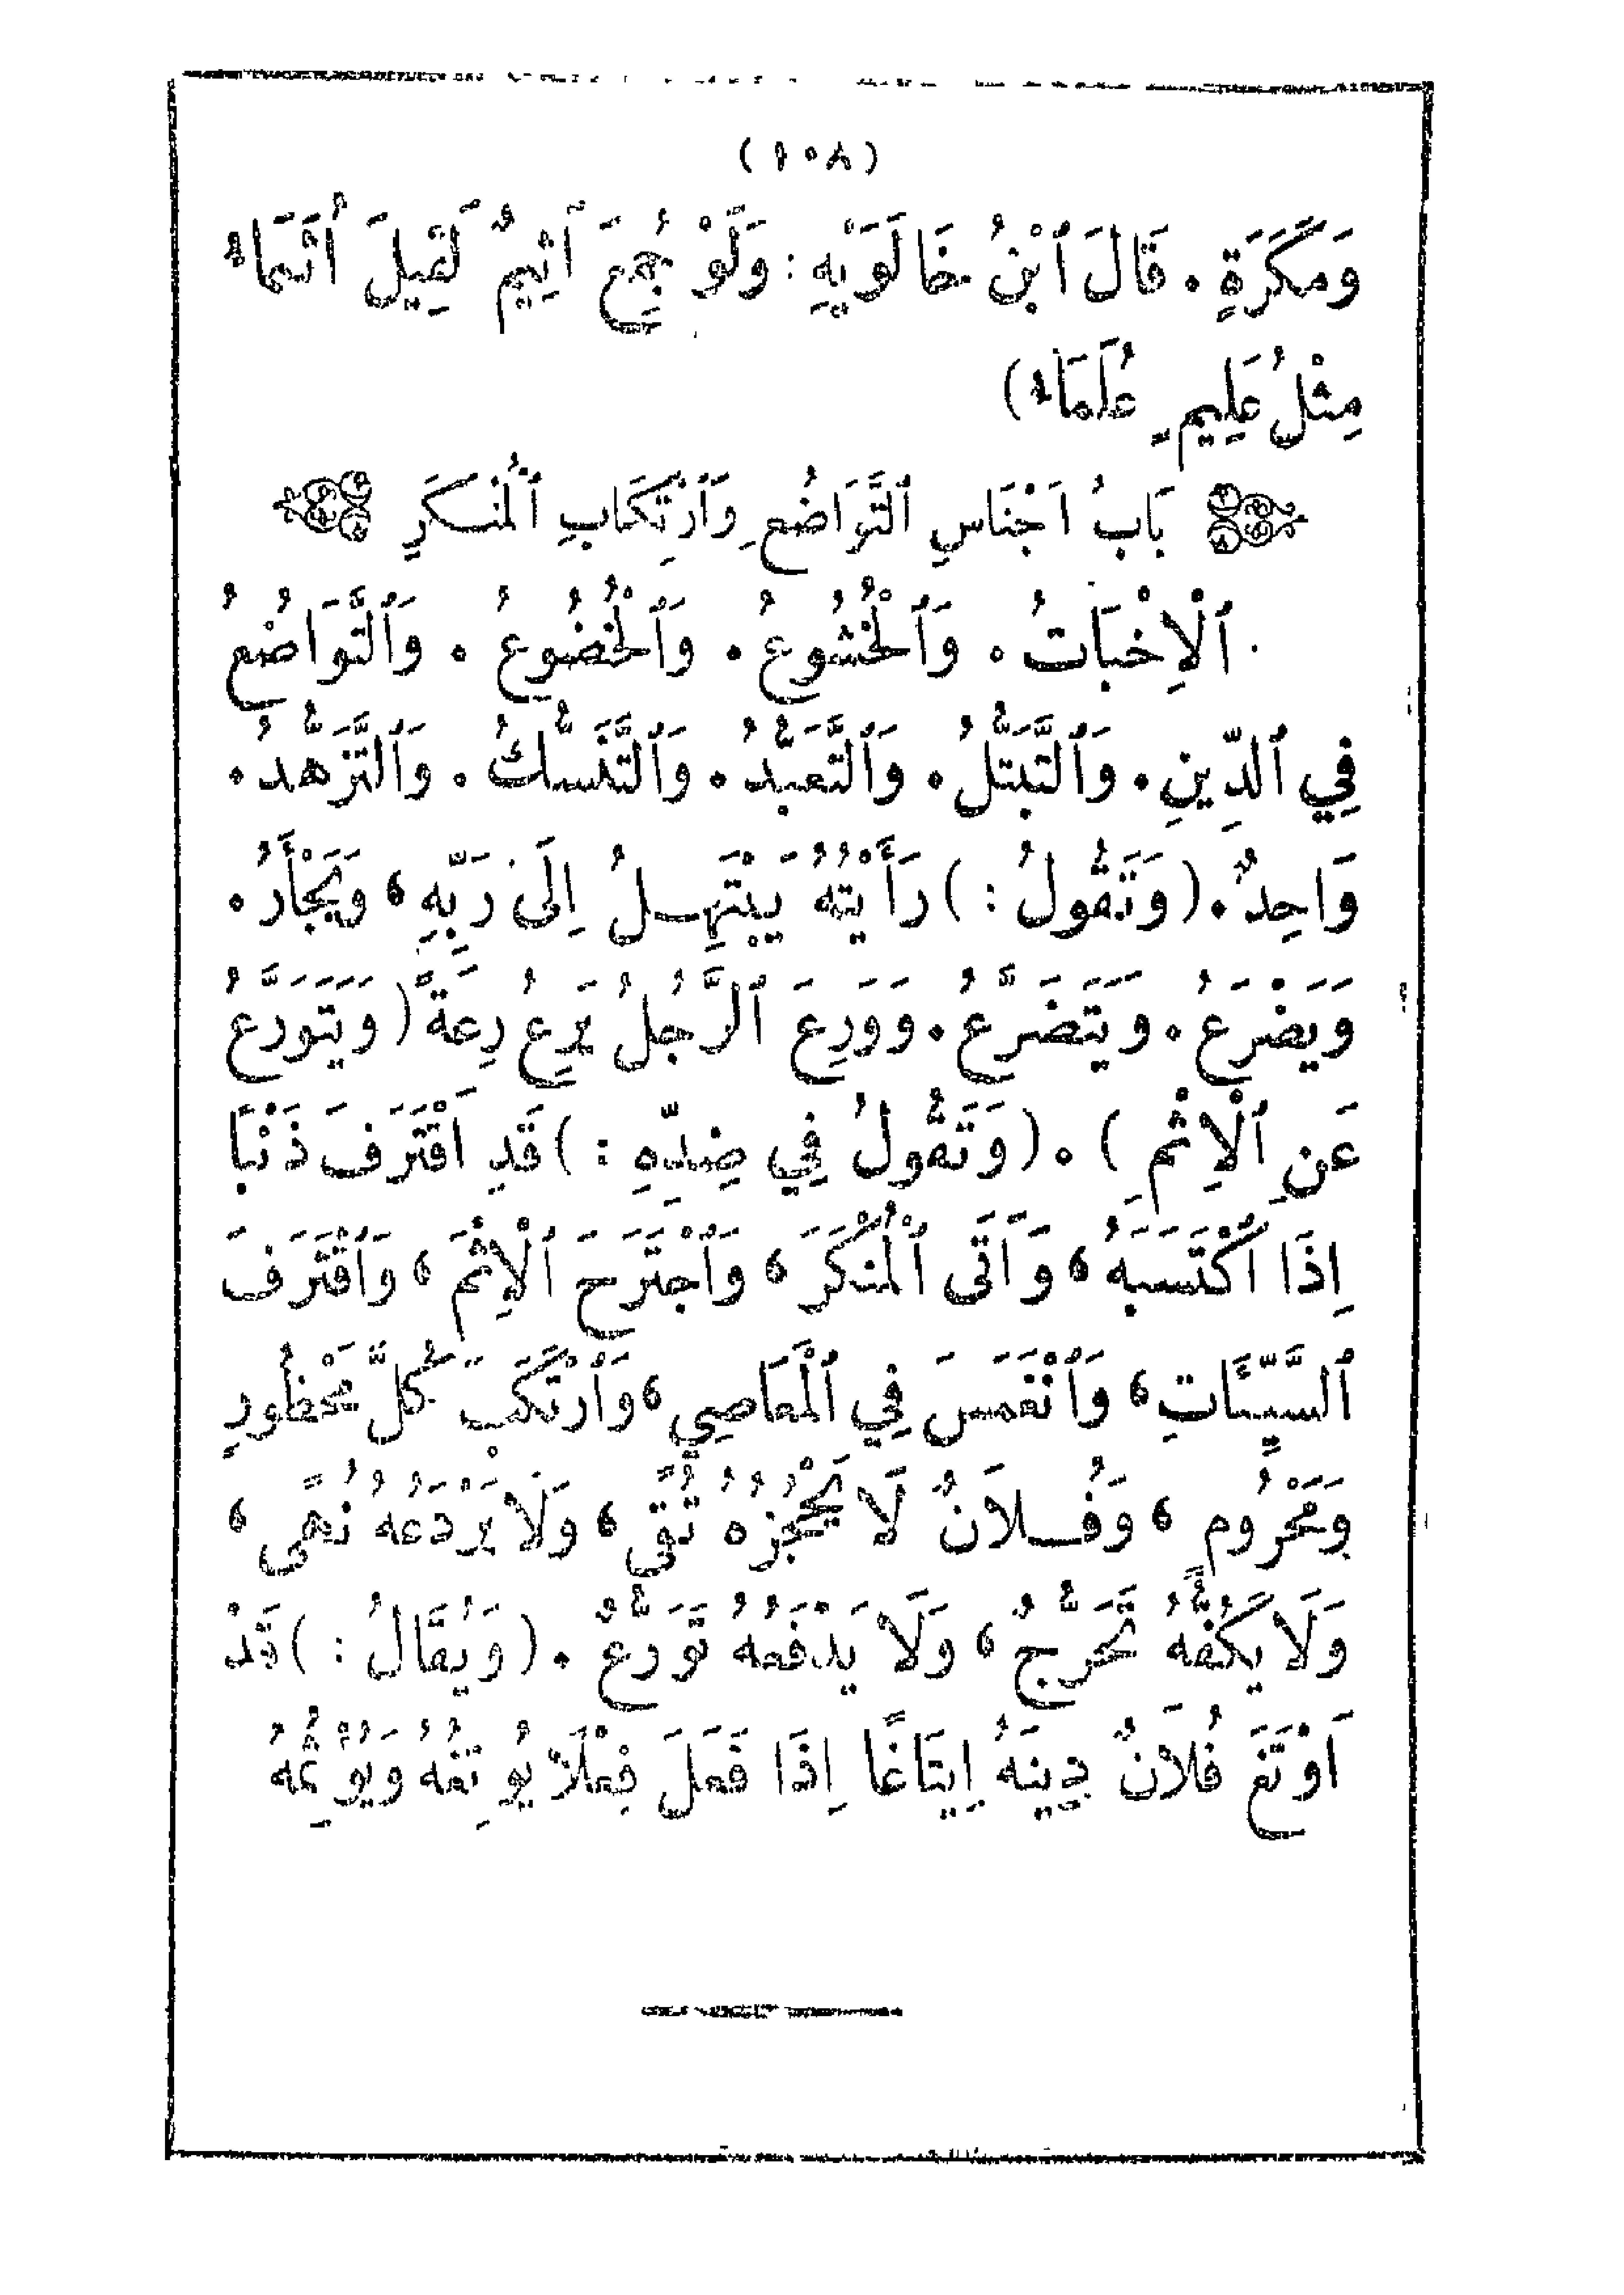 (١٠٨)
وَمَكَرَةٍ . قَالَ ٱبْنُ خَالَوَيْهِ : وَلَوْ جُمِعَ اَثِيمٌ لَقِيلَ أُثَمَاءُ
مِثْلُ عَلِيمٍ عُلَمَاءُ)
بَابُ اَجْنَاسِ ٱلتَّوَاضُعِ وَٱرْتِكَابِ ٱلْمُنْكَرِ
ٱلْاِخْبَاتُ . وَٱلْخُشُوعُ . وَٱلْخُضُوعُ . وَٱلتَّوَاضُعُ
فِي ٱلدِّينِ . وَٱلتَّبَتُّلُ . وَٱلتَّعَبُّدُ . وَٱلتَّنَسُّكُ . وَٱلتَّزَهُّدُ .
وَاحِدٌ . (وَتَقُولُ :) رَأَيْتُهُ يَبْتَهِلُ اِلَى رَبِّهِ ، وَيَجْأَرُ .
وَيَضْرَعُ . وَيَتَضَرَّعُ . وَوَرِعَ ٱلرَّجُلُ يَرِعُ رِعَةً (وَيَتَوَرَّعُ
عَنِ ٱلْاِثْمِ) . (وَتَقُولُ فِي ضِدِّهِ :) قَدِ ٱقْتَرَفَ ذَنْبًا
اِذَا ٱكْتَسَبَهُ ، وَاَتَى ٱلْمُنْكَرَ ، وَٱجْتَرَحَ ٱلْاِثْمَ ، وَٱقْتَرَفَ
ٱلسَّيِّئَاتِ ، وَٱنْغَمَسَ فِي ٱلْمَعَاصِي ، وَٱرْتَكَبَ كُلَّ مَحْظُورٍ
وَمَحْرُومٍ ، وَفُلَانٌ لَا يَحْجُزُهُ تُقًى ، وَلَا يَرْدَعُهُ نُهًى ،
وَلَا يَكُفُّهُ تَحَرُّجٌ ، وَلَا يَدْفَعُهُ تَوَرُّعٌ . (وَيُقَالُ :) قَدْ
اَوْتَغَ فُلَانٌ دِينَهُ اِيتَاغًا اِذَا فَعَلَ فِعْلًا يُوتِغُهُ وَيُؤْثِمُهُ